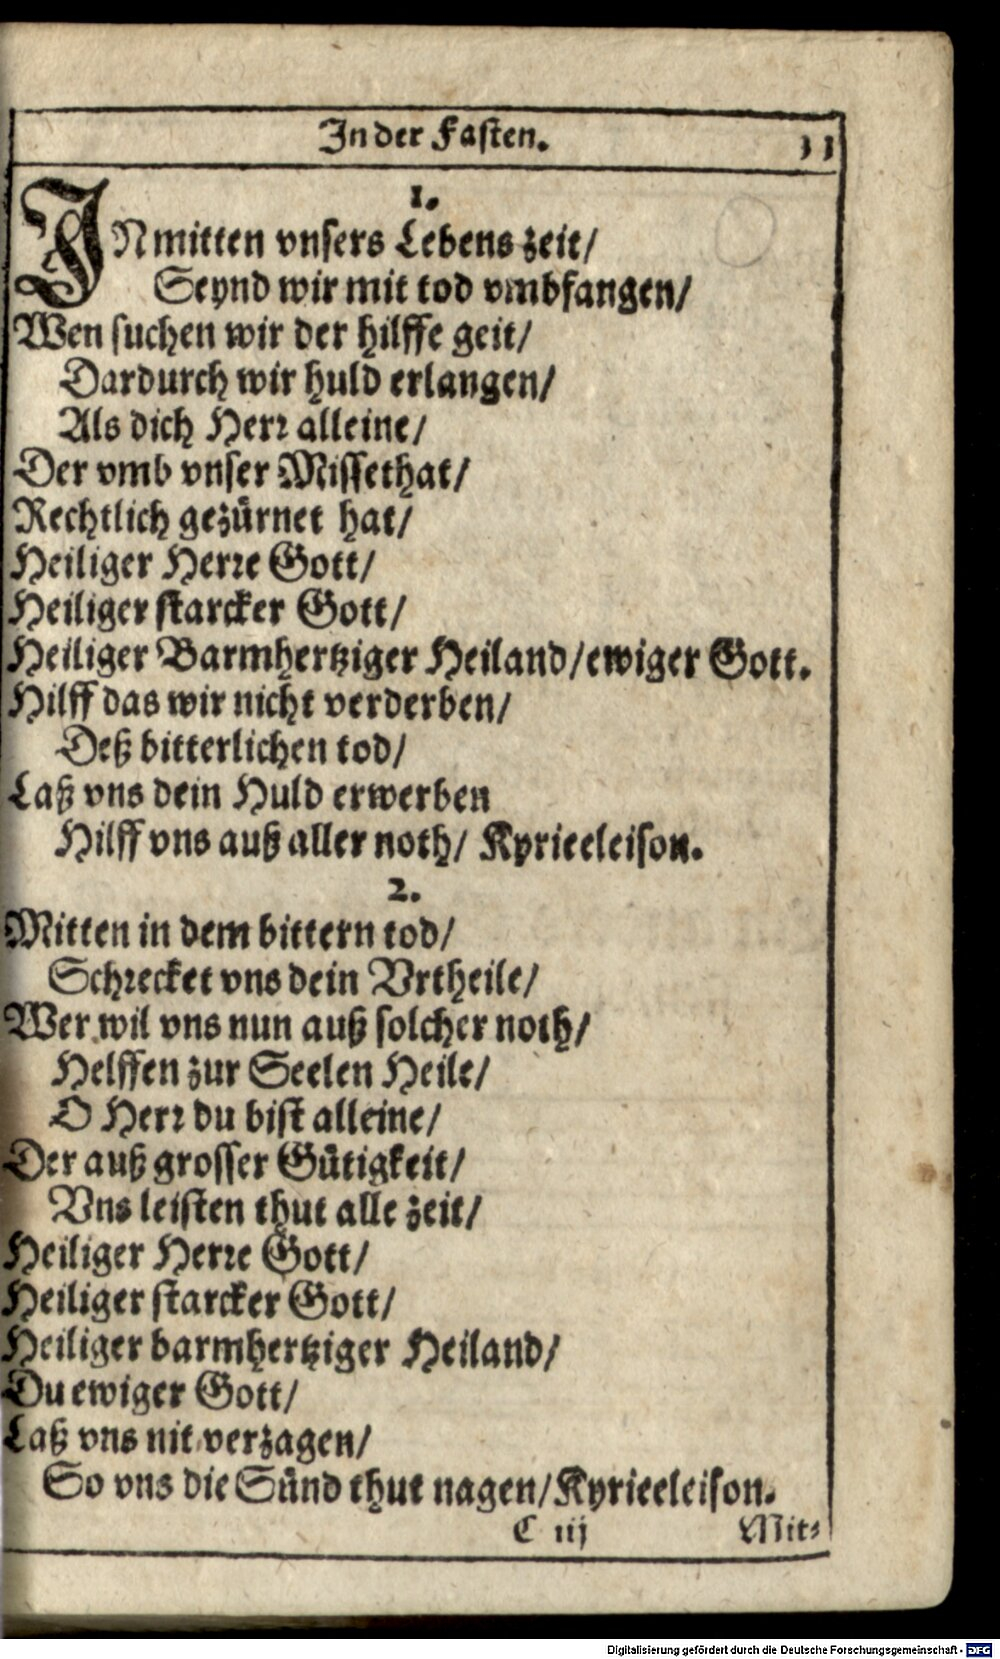 In der Fasten. 11
1.
INmitten vnsers Lebens zeit/
Seynd wir mit tod vmbfangen/
Wen suchen wir der hilffe geit/
Dardurch wir huld erlangen/
Als dich Herr alleine/
Der vmb vnser Missethat/
Rechtlich gezürnet hat/
Heiliger Herre Gott/
Heiliger starcker Gott/
Heiliger Barmhertziger Heiland/ewiger Gott.
Hilff das wir nicht verderben/
Deß bitterlichen tod/
Laß vns dein Huld erwerben
Hilff vns auß aller noth/ Kyrieeleison.
2.
Mitten in dem bittern tod/
Schrecket vns dein Vrtheile/
Wer wil vns nun auß solcher noth/
Helffen zur Seelen Heile/
O Herr du bist alleine/
Der auß grosser Gütigkeit/
Vns leisten thut alle zeit/
Heiliger Herre Gott/
Heiliger starcker Gott/
Heiliger barmhertziger Heiland/
Du ewiger Gott/
Laß vns nit verzagen/
So vns die Sünd thut nagen/Kyrieeleison.
C iij Mit⸗
Digitalisierung gefördert durch die Deutsche Forschungsgemeinschaft - DFG